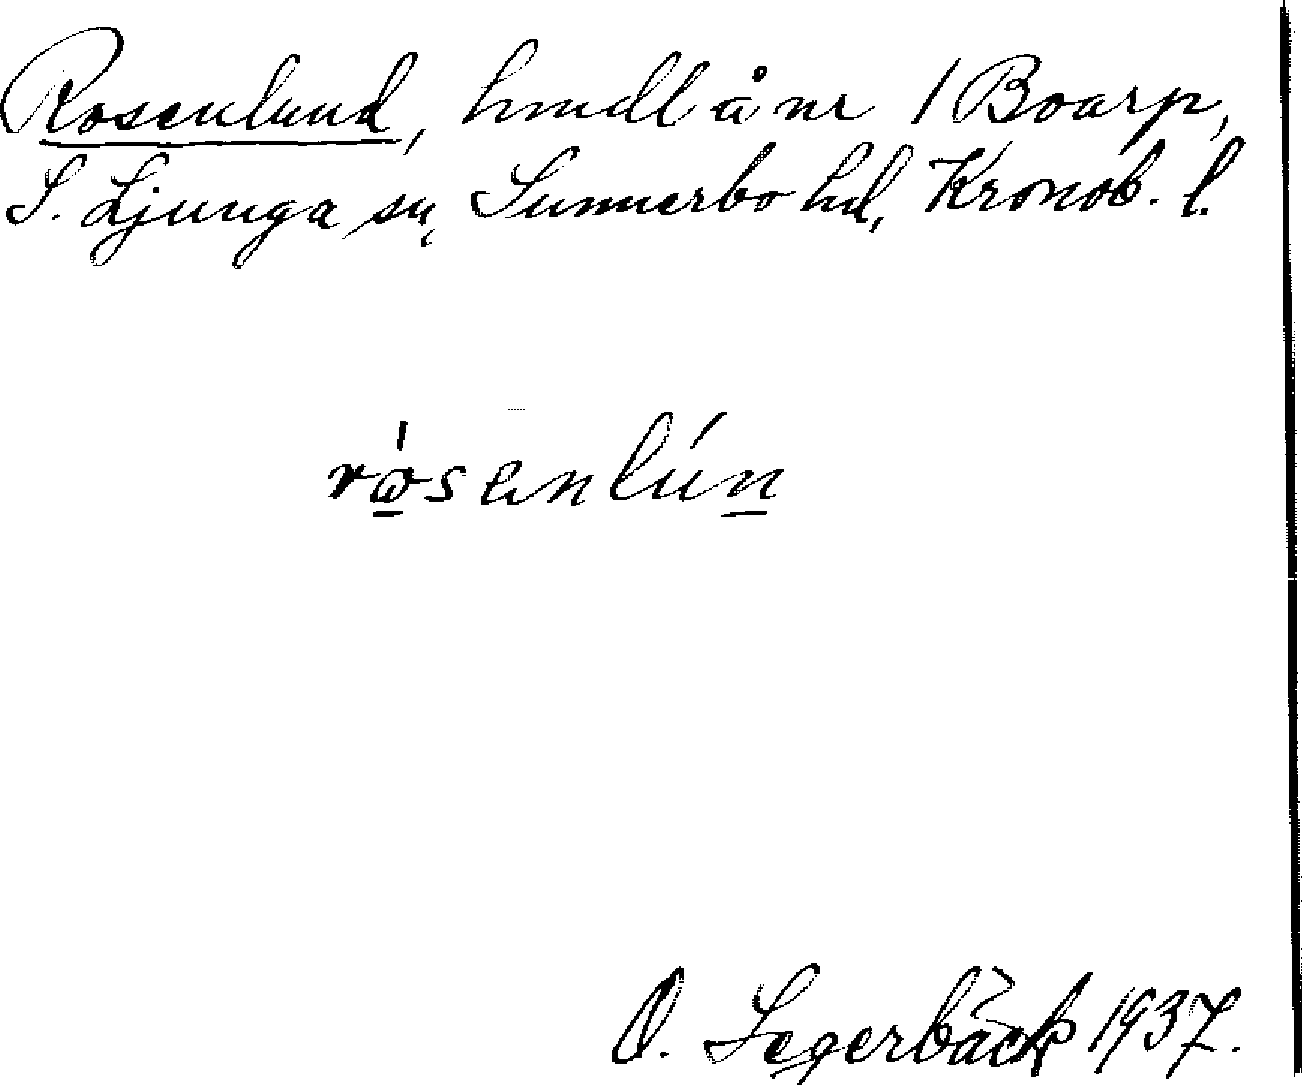 Rosenlund, hmdl å nr 1 Boarp,
S. Ljunga sn, Sunnerbo hd, Kronob. l.
rὼ̲senlún̲
O. Segerbäck 1937.